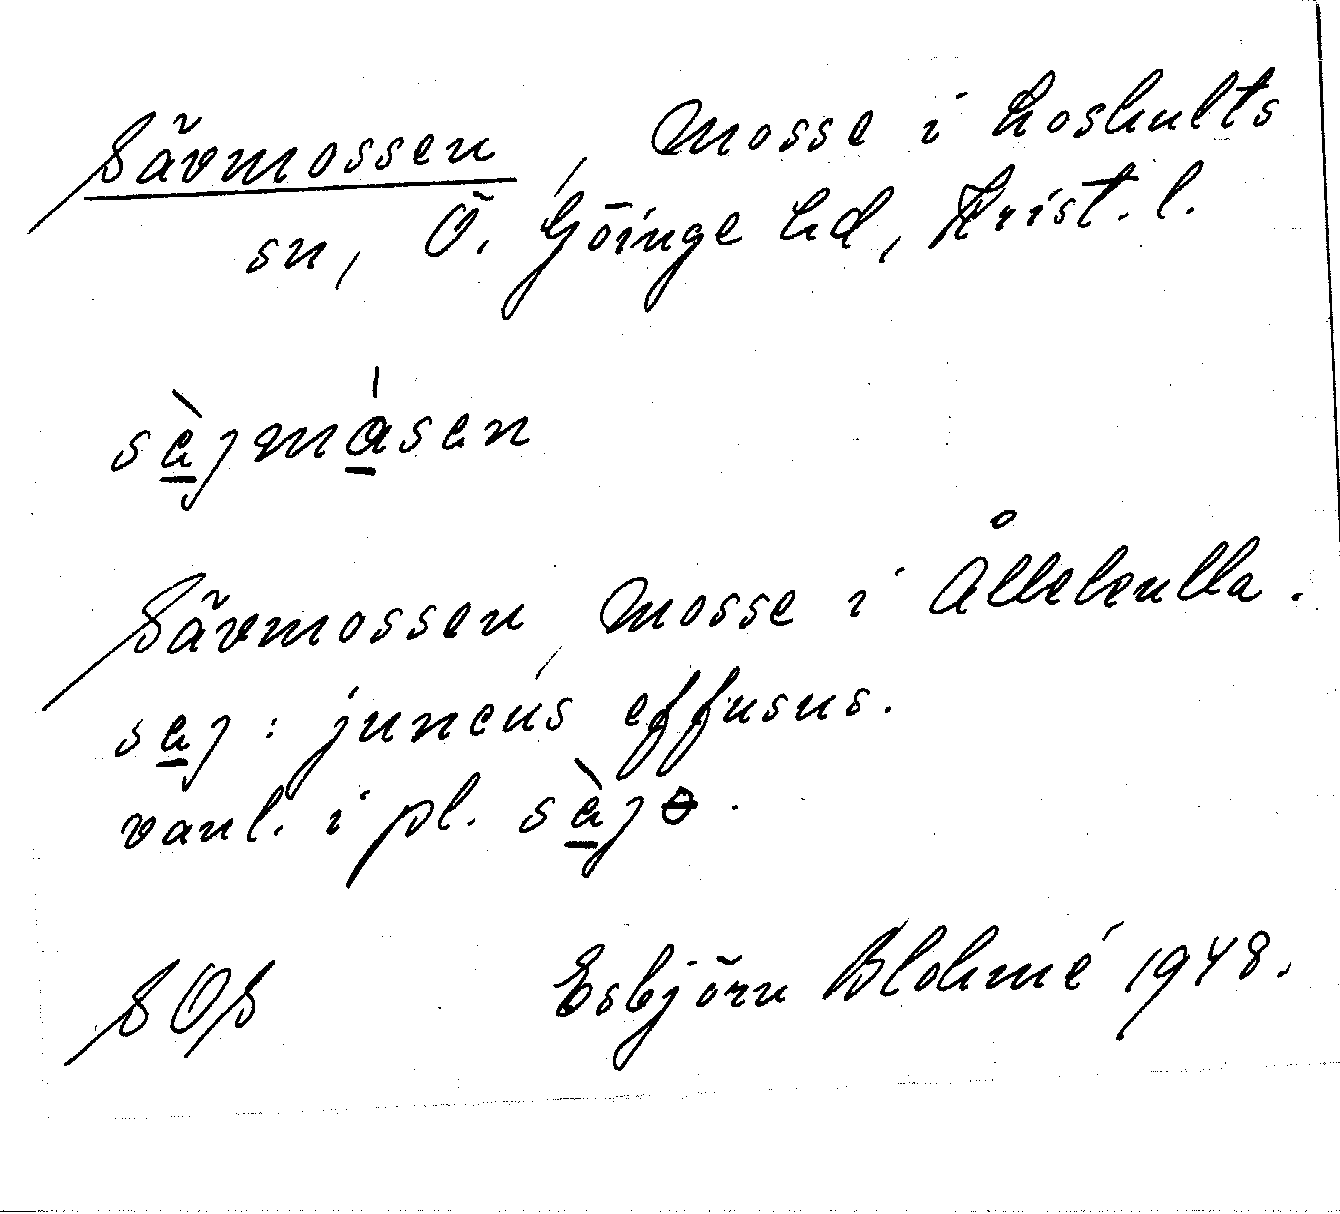 Sävmossen, Mosse i Loshults
sn, Ö. Göinge hd, Krist. l.
sàjmásen
Sävmossen, Mosse i Ållekulla.
saj: juncus effusus.
vanl. i pl. sàjə.
SOS Esbjörn Blohmé 1948.